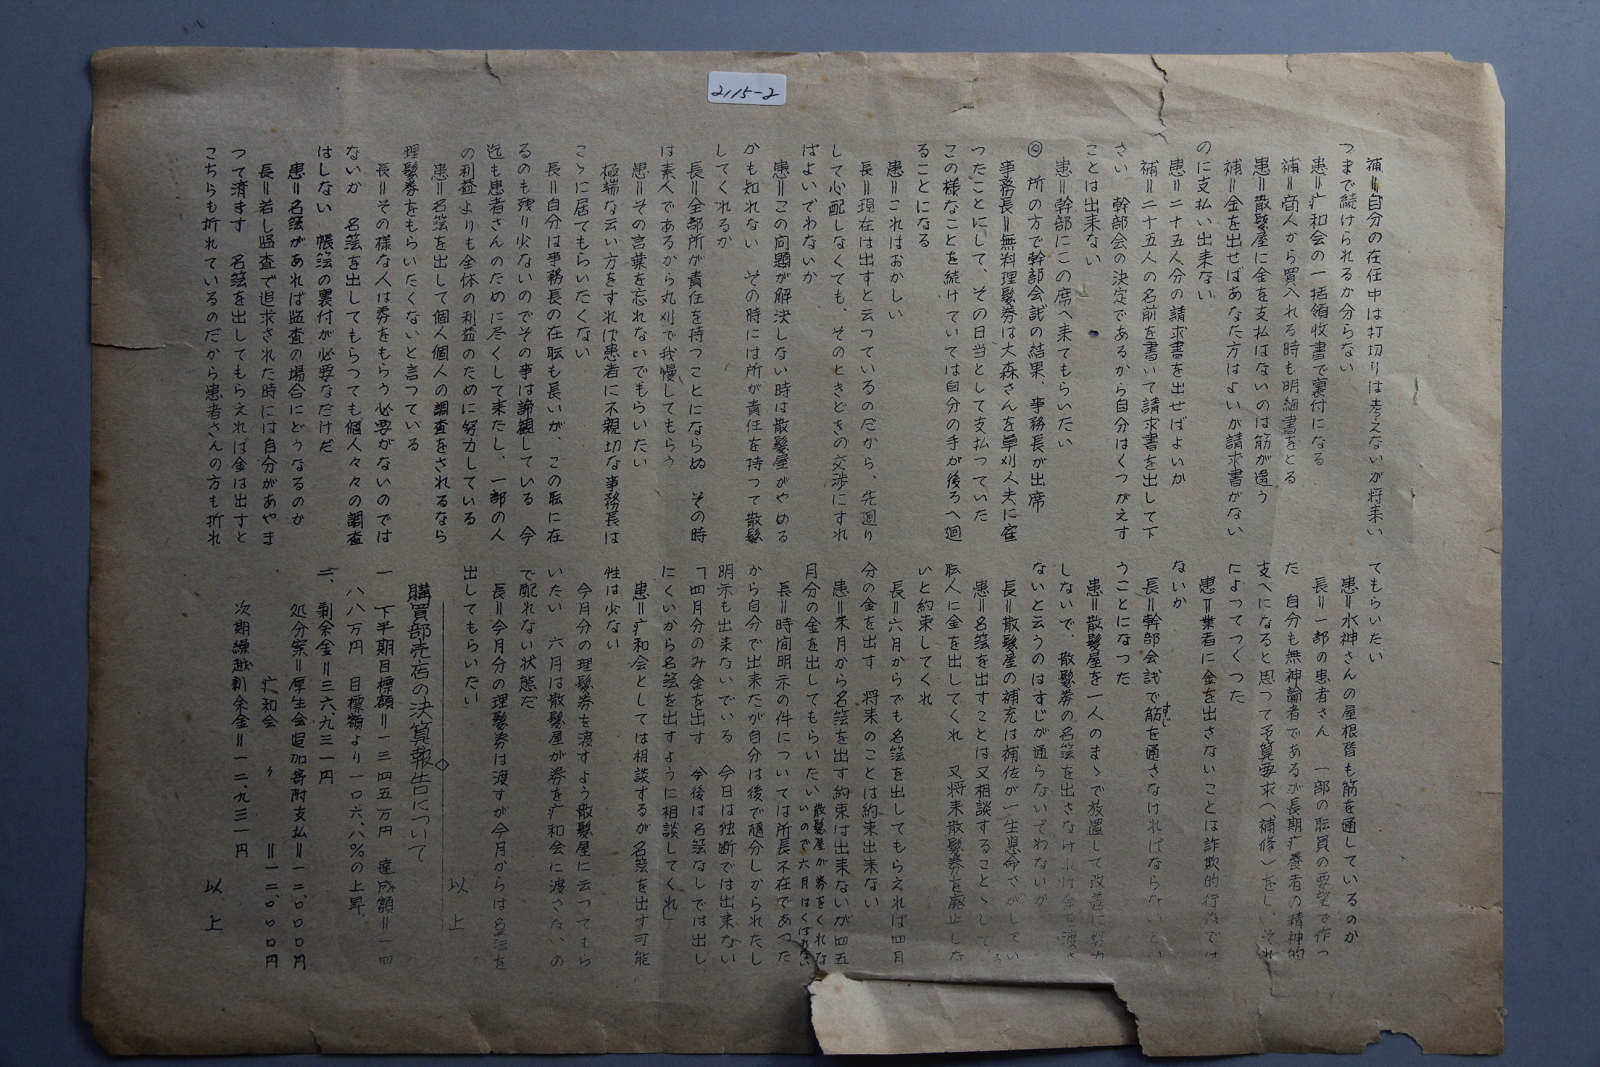 2115-2
補=自分の在任中は打切りは考えないが将来い
つまで続けられるか分らない
患=疒和会の一括領收書で裏付になる
補=商人から買入れる時も明細書をとる
患=散髪屋に金を支払はないのは筋が違う
補=金を出せばあなた方はよいが請求書がない
のに支払い出来ない
患=二十五人分の請求書を出せばよいか
補=二十五人の名前を書いて請求書を出して下
さい 幹部会の決定であるから自分はくつがえす
ことは出来ない
患=幹部にこの席へ来てもらいたい
◎ 所の方で幹部会議の結果、事務長が出席
事務長=無料理髪券は大森さんを草刈人夫に雇
つたことにして、その日当として支払つていた
この様なことを続けていては自分の手が後ろへ廻
ることになる
患=これはおかしい
長=現在は出すと云つているのだから、先廻り
して心配しなくても、そのときどきの交渉にすれ
ばよいでわないか
患=この問題が解決しない時は散髪屋がやめる
かも知れない その時には所が責任を持つて散髪
してくれるか
長=全部所が責任を持つことにならぬ その時
は素人であるから丸刈で我慢してもらう
患=その言葉を忘れないでもらいたい
極端な云い方をすれば患者に不親切な事務長は
こゝに居てもらいたくない
長=自分は事務長の在職も長いが、この職に在
るのも残り少ないのでその事は諦観している 今
迄も患者さんのために尽くして来たし、一部の人
の利益よりも全体の利益のために努力している
患=名簿を出して個人個人の調査をされるなら
理髪券をもらいたくないと言つている
長=その様な人は券をもらう必要がないのでは
ないか 名簿を出してもらつても個人々々の調査
はしない 帳簿の裏付が必要なだけだ
患=名簿があれば監査の場合にどうなるのか
長=若し監査で追求された時には自分があやま
つて済ます 名簿を出してもらえれば金は出すと
こちらも折れているのだから患者さんの方も折れ
てもらいたい
患=水神さんの屋根替も筋を通しているのか
長=一部の患者さん 一部の職員の要望で作つ
た 自分も無神論者であるが長期疒養者の精神的
支へになると思つて予算要求へ補修)をし、それ
によつてつくつた
患=業者に金を出さないことは詐欺的行為では
ないか
長=幹部会議で筋を通さなければならないとい
すじ
うことになつた
患=散髪屋を一人のまゝで放置して改善に努力
しないで、散髪券の名簿を出さなければ金を渡さ
ないと云うのはすじが通らないでわないか
長=散髪屋の補充は補佐が一生懸命さがしてい
患=名簿を出すことは又相談することゝして、
職人に金を出してくれ 又将来散髪券を廃止しな
いと約束してくれ
長=六月からでも名簿を出してもらえれば四月
分の金を出す 将来のことは約束出来ない
患=来月から名簿を出す約束は出来ないが四五
月分の金を出してもらいたい
散髪屋が券をくれな
いので六月はくばれない
長=時間明示の件については所長不在であつた
から自分で出来たが自分は後で随分しかられたし
明示も出来ないでいる 今日は独断では出来ない
「四月分のみ金を出す 今後は名簿なしでは出し
にくいから名簿を出すように相談してくれ」
患=疒和会としては相談するが名簿を出す可能
性は少ない
今月分の理髪券を渡すよう散髪屋に云つてもら
いたい 六月は散髪屋が券を疒和会に渡さないの
で配れない状態だ
長=今月分の理髪券は渡すが今月からは名簿を
出してもらいたい
以上
購買部売店の決算報告について
一 下半期目標額=一三四五万円 達成額=一四
八八万円 目標額より一〇六.八%の上昇.
二、剰余金=三六九三一円
処分案=厚生会追加寄附支払=一二.〇〇〇円
疒和会 〃 =一二.〇〇〇円
次期繰越剰余金=一二.九三一円
以上